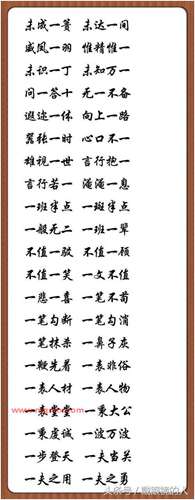 未成一篑 未达一间
威凤一羽 惟精惟一
未识一丁 未知万一
问一答十 无一不备
遐迩一体 向上一路
嚣张一时 心口不一
雄视一世 言行抱一
言行若一 淹淹一息
一班半点 一斑半点
一般无二 不班一辈
不值一驳 不值一顾
不值一笑 一文不值
一悲一喜 一笔不苟
一笔勾断 一笔勾消
一笔抹杀 一鼻子灰
一鞭先着 一表非俗
一表人材 一表人物
一表堂堂 一秉大公
一秉虔诚 一波万波
一步登天 一夫当关
一夫之用 一夫之勇